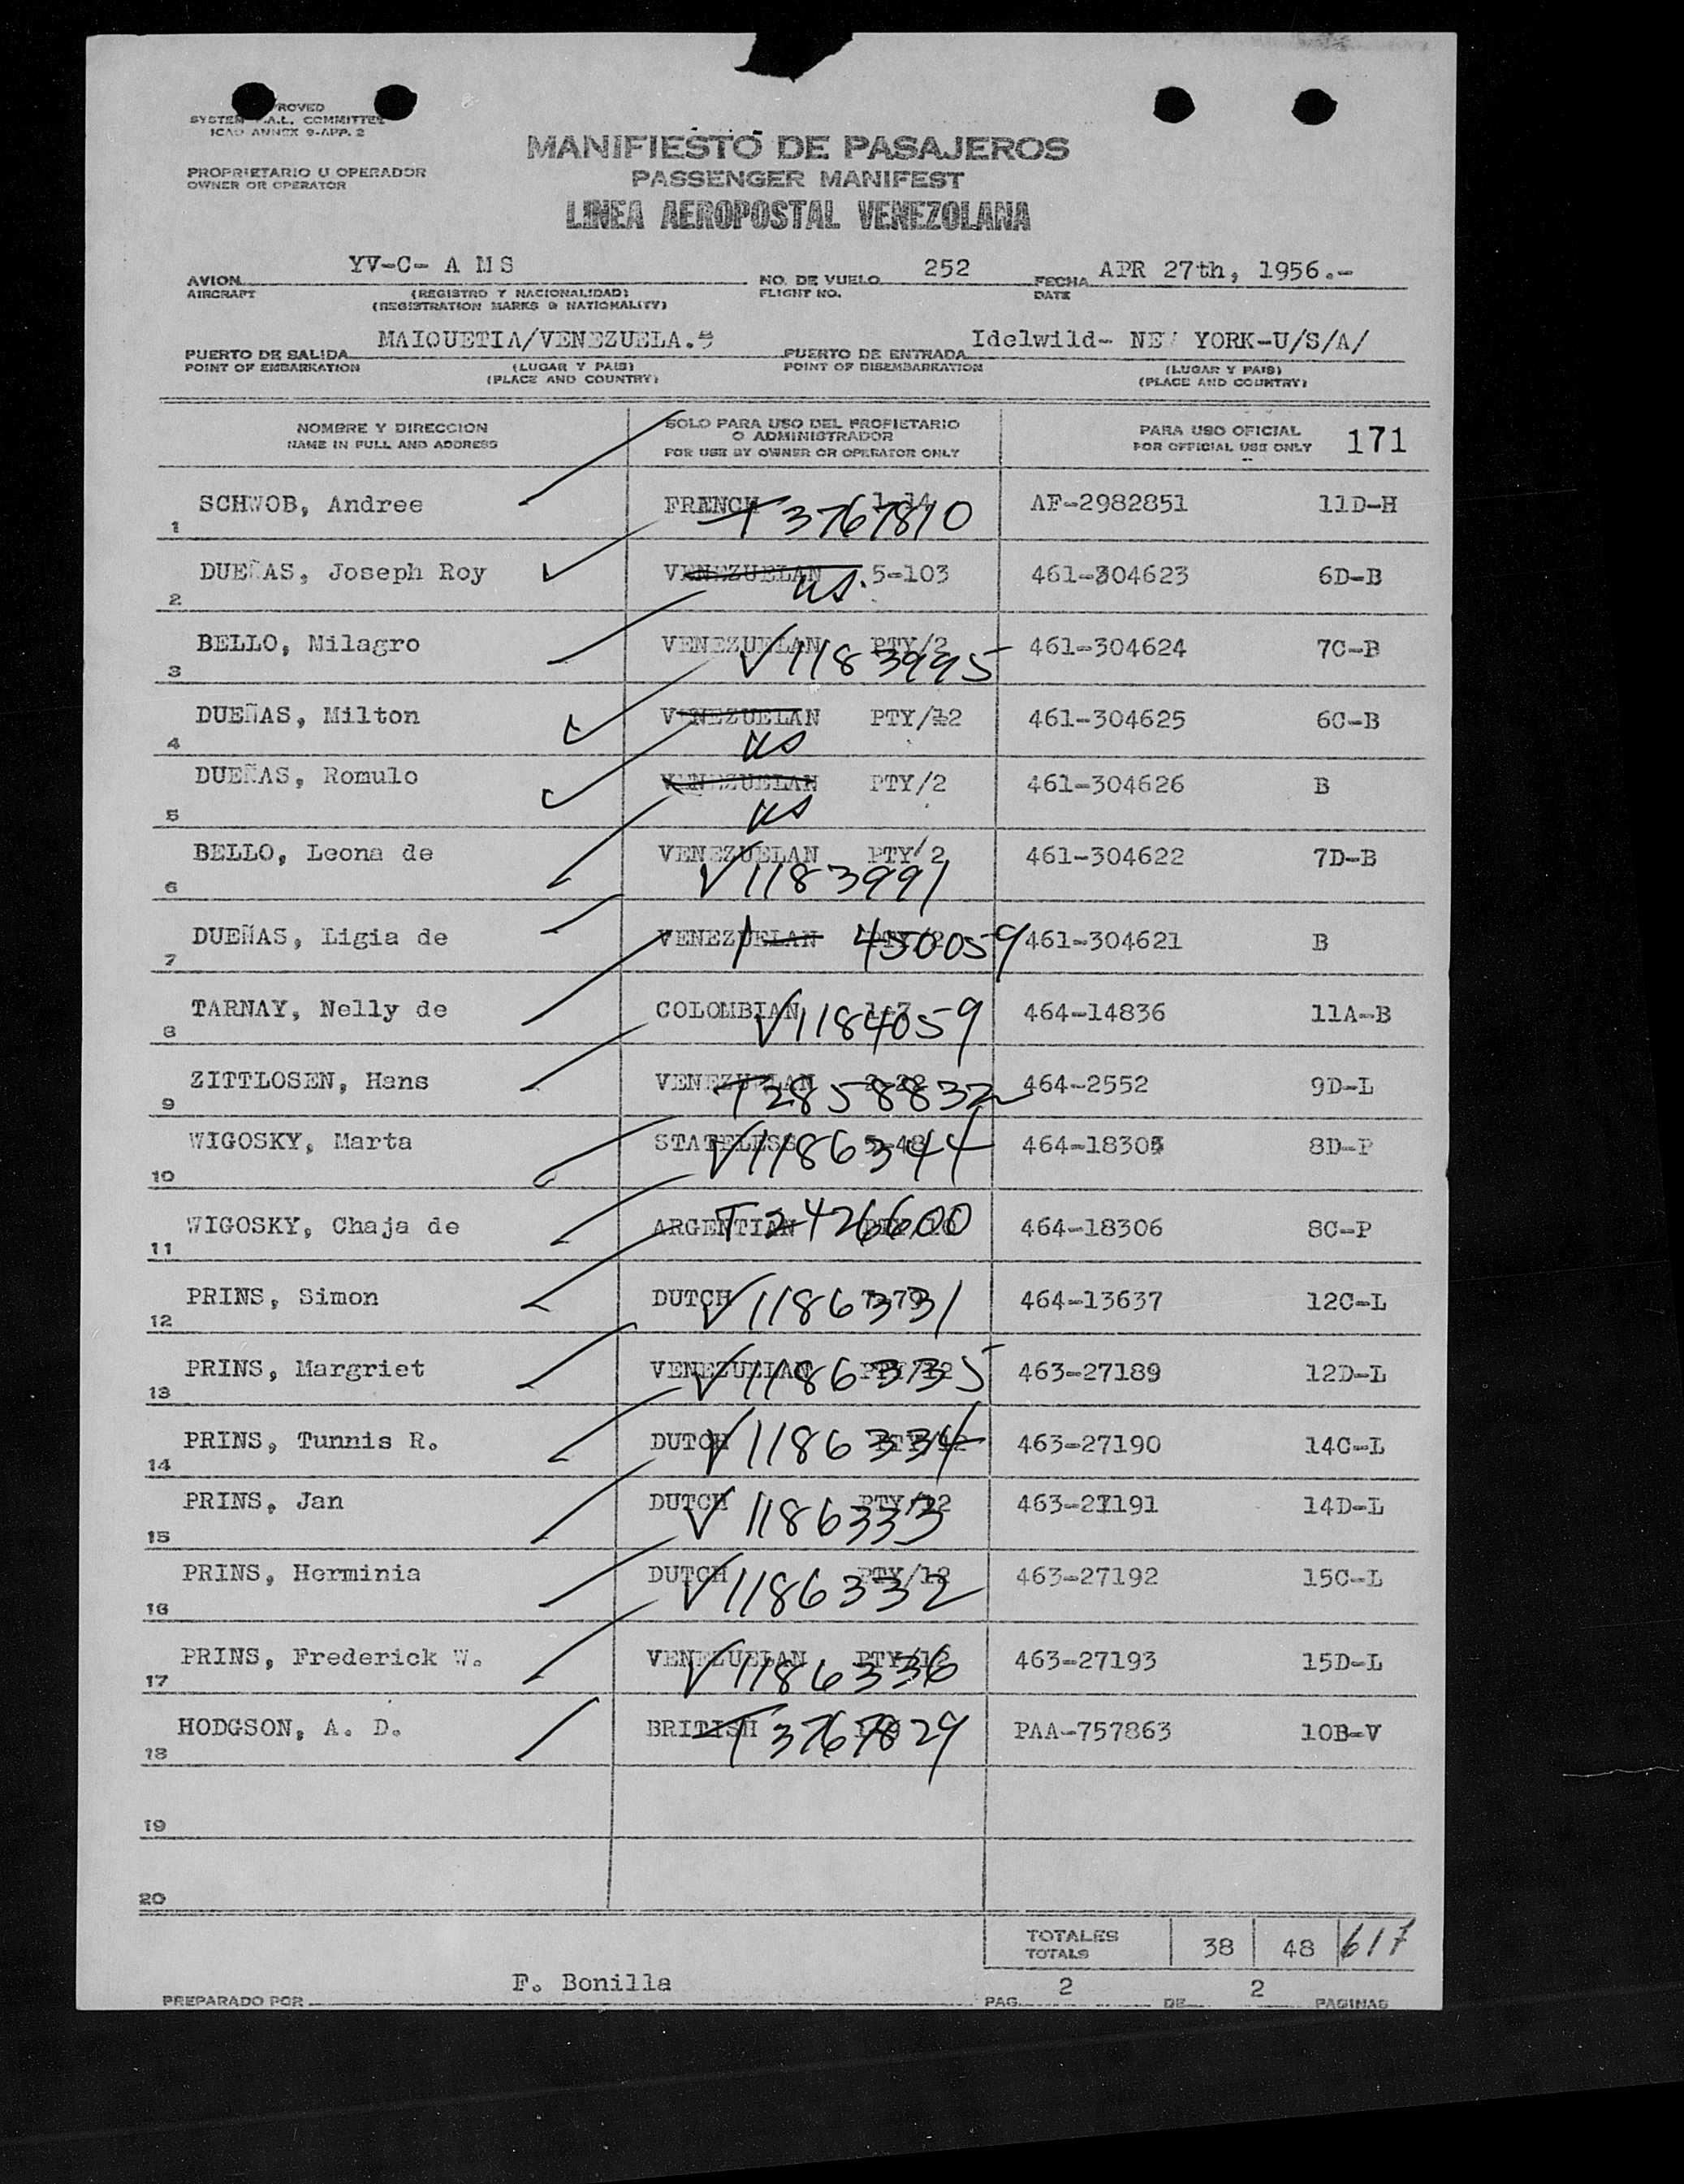 ROVED
SYSTEM F.A.L. COMMITTEE
ICAO ANNEX 9-APP. 2
MANIFIESTO DE PASAJEROS
PASSENGER MANIFEST
LINEA AEROPOSTAL VENEZOLANA
PROPRIETARIO U OPERADOR
OWNER OR OPERATOR
AVION YV-C- A M S NO. DE VUELO 252 FECHA APR 27th, 1956.-
AIRCRAFT (REGISTRO Y NACIONALIDAD) FLIGHT NO. DATE
(REGISTRATION MARKS & NATIONALITY)
PUERTO DE SALIDA MAIQUETIA/VENEZUELA. PUERTO DE ENTRADA Idelwild- NEW YORK-U/S/A/
POINT OF EMBARKATION (LUGAR Y PAIS) POINT OF DISEMBARKATION (LUGAR Y PAIS)
(PLACE AND COUNTRY) (PLACE AND COUNTRY)
NOMBRE Y DIRECCION SOLO PARA USO DEL PROFIETARIO PARA USO OFICIAL 171
NAME IN FULL AND ADDRESS O ADMINISTRADOR FOR OFFICIAL USE ONLY
FOR USE BY OWNER OR OPERATOR ONLY
1 SCHWOB, Andree FRENCH 1-14 T3767810 AF-2982851 11D-H
2 DUEÑAS, Joseph Roy VENEZUELAN 5-103 US. 461-304623 6D-B
3 BELLO, Milagro VENEZUELAN PTY/2 V1183995 461-304624 7C-B
4 DUEÑAS, Milton VENEZUELAN PTY/2 US 461-304625 6C-B
5 DUEÑAS, Romulo VENEZUELAN PTY/2 US 461-304626 B
6 BELLO, Leona de VENEZUELAN PTY/2 V1183991 461-304622 7D-B
7 DUEÑAS, Ligia de VENEZUELAN PTY/2 450059 461-304621 B
8 TARNAY, Nelly de COLOMBIAN 1-7 V1184059 464-14836 11A-B
9 ZITTLOSEN, Hans VENEZUELAN T2858832 464-2552 9D-L
10 WIGOSKY, Marta STATELESS 5-48 V1186344 464-18305 8D-P
11 WIGOSKY, Chaja de ARGENTIAN T2426600 464-18306 8C-P
12 PRINS, Simon DUTCH V1186331 464-13637 12C-L
13 PRINS, Margriet VENEZUELAN PTY/12 V1186335 463-27189 12D-L
14 PRINS, Tunnis R. DUTCH PTY/12 V1186334 463-27190 14C-L
15 PRINS, Jan DUTCH PTY/12 V1186333 463-27191 14D-L
16 PRINS, Herminia DUTCH PTY/12 V1186332 463-27192 15C-L
17 PRINS, Frederick W. VENEZUELAN PTY/12 V1186336 463-27193 15D-L
18 HODGSON, A. D. BRITISH T3767829 PAA-757863 10B-V
19
20
TOTALES 38 48 617
TOTALS
PREPARADO POR F. Bonilla PAG. 2 DE 2 PAGINAS